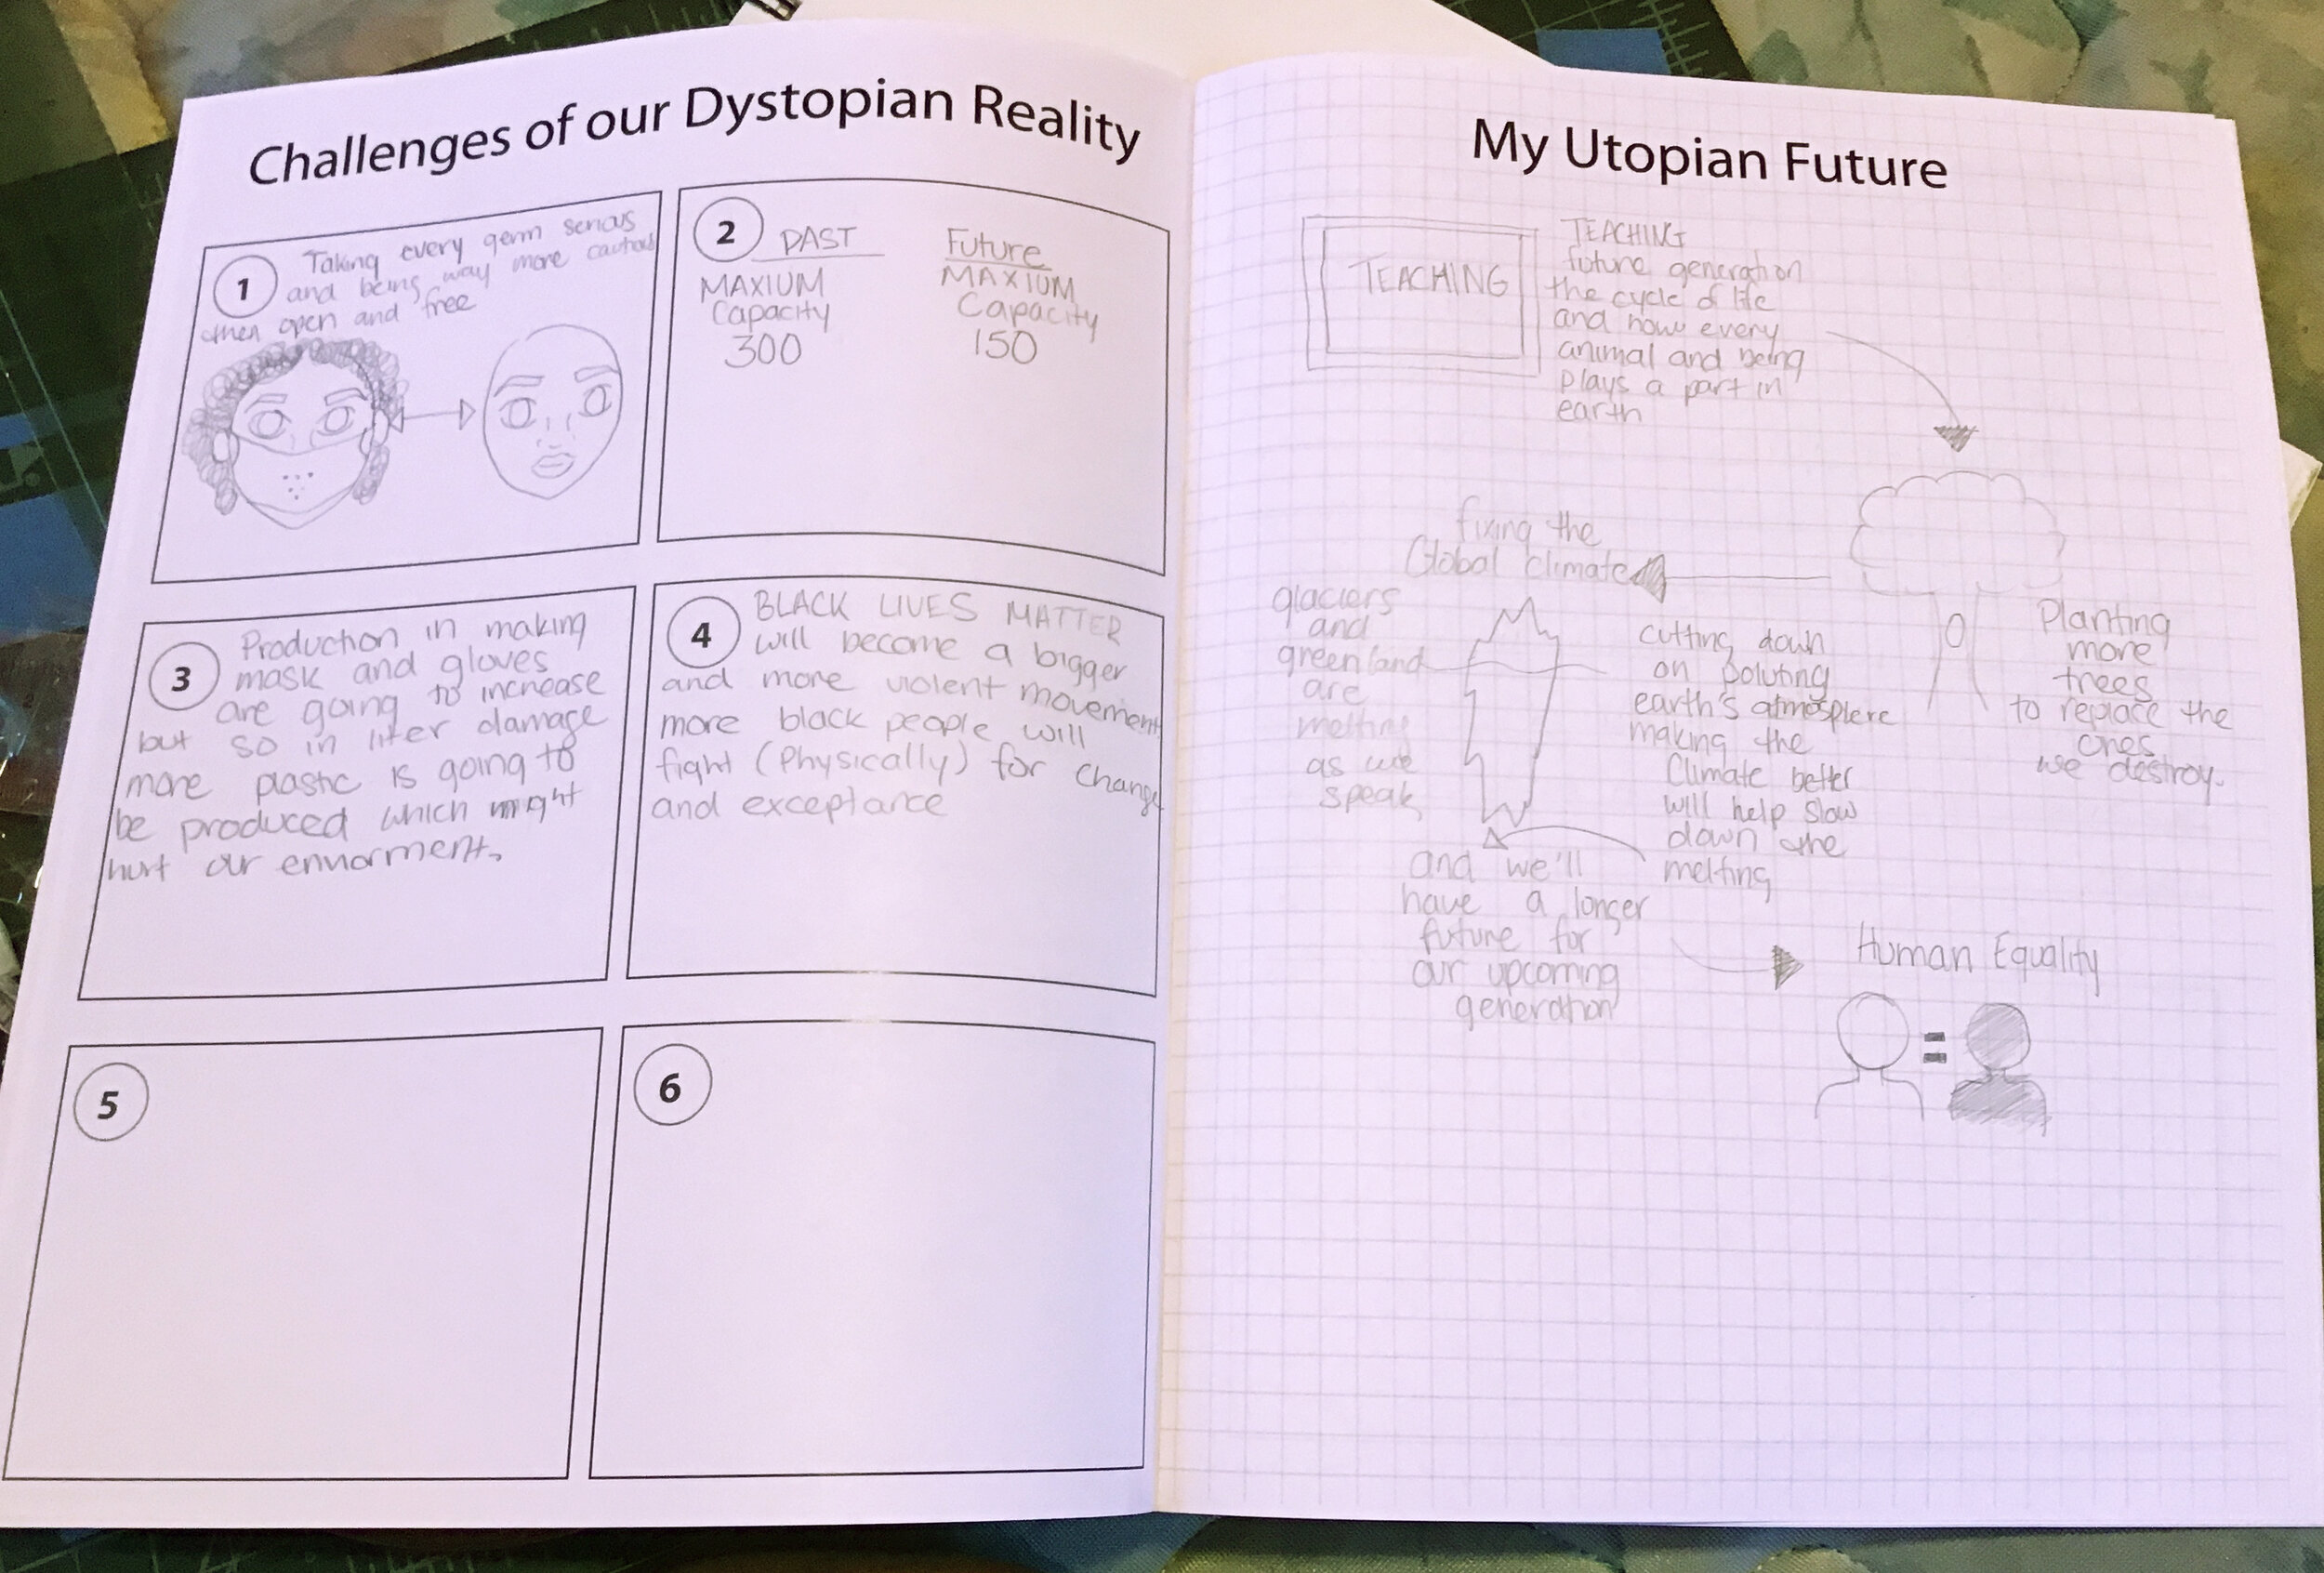 Challenges of our Dystopian Reality
1
Taking every germ serious
and being way more cautious
then open and free
2
PAST
MAXIUM
Capacity
300
Future
MAXIUM
Capacity
150
3
Production in making
mask and gloves
are going to increase
but so in liter damage
more plastic is going to
be produced which might
hurt our
4
BLACK LIVES MATTER
will become a bigger
and more violent movement
more black people will
fight (Physically) for change
and exceptance
5
6
My Utopian Future
TEACHING
TEACHING
future generation
the cycle of life
and how every
animal and being
plays a part in
earth
Planting
more
trees
to replace the
ones
we destroy.
fixing the
Global climate
glaciers
and
greenland
are
melting
as we
speak
cutting down
on poluting
earth's atmosplere
making the
Climate better
will help slow
down the
melting
and we'll
have a longer
future for
our upcoming
generation
Human Equality
=